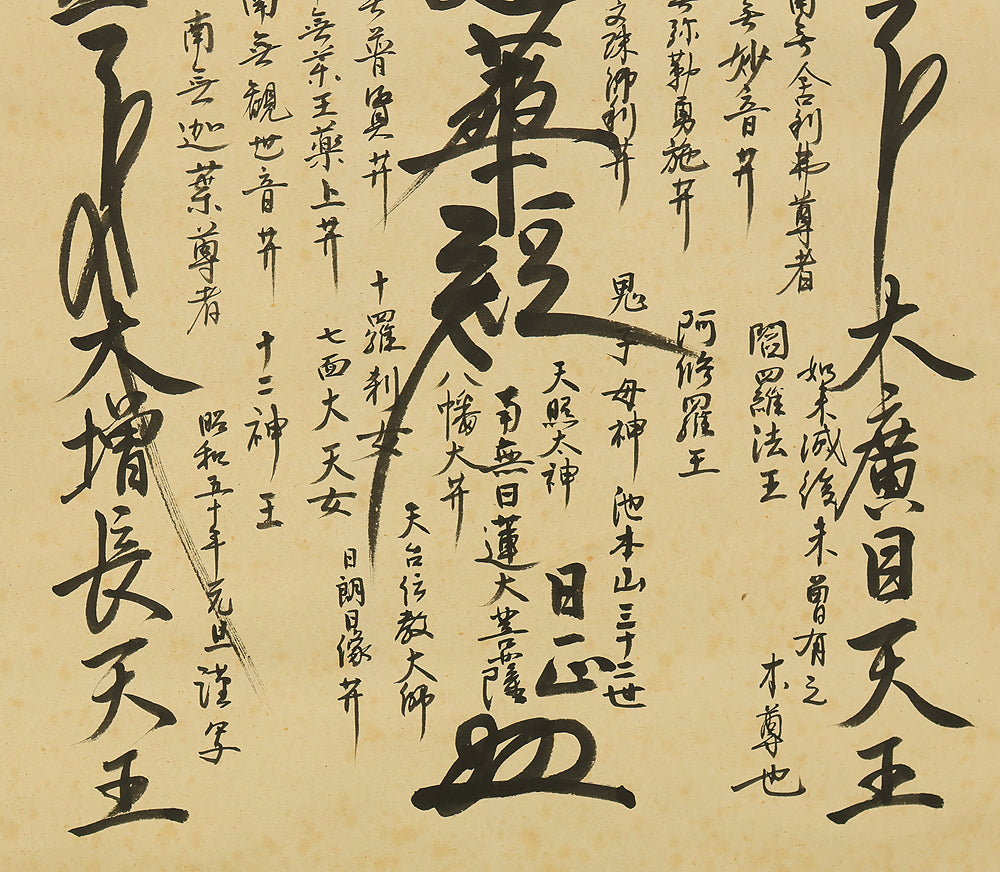 大廣目天王
南無舍利弗尊者
如来滅後未曾有之
本尊也
無妙音井
閻羅法王
無弥勒勇施井
阿修羅王
文殊師利井
鬼子母神
池本山三十二世
日正
天照太神
蓮華経
南無日蓮大菩薩
八幡大井
天台伝教大師
無普賢井
十羅刹女
日朗日像井
無薬王薬上井
七面大天女
南無観世音井
十二神王
南無迦葉尊者
昭和五十年元旦謹写
大増長天王